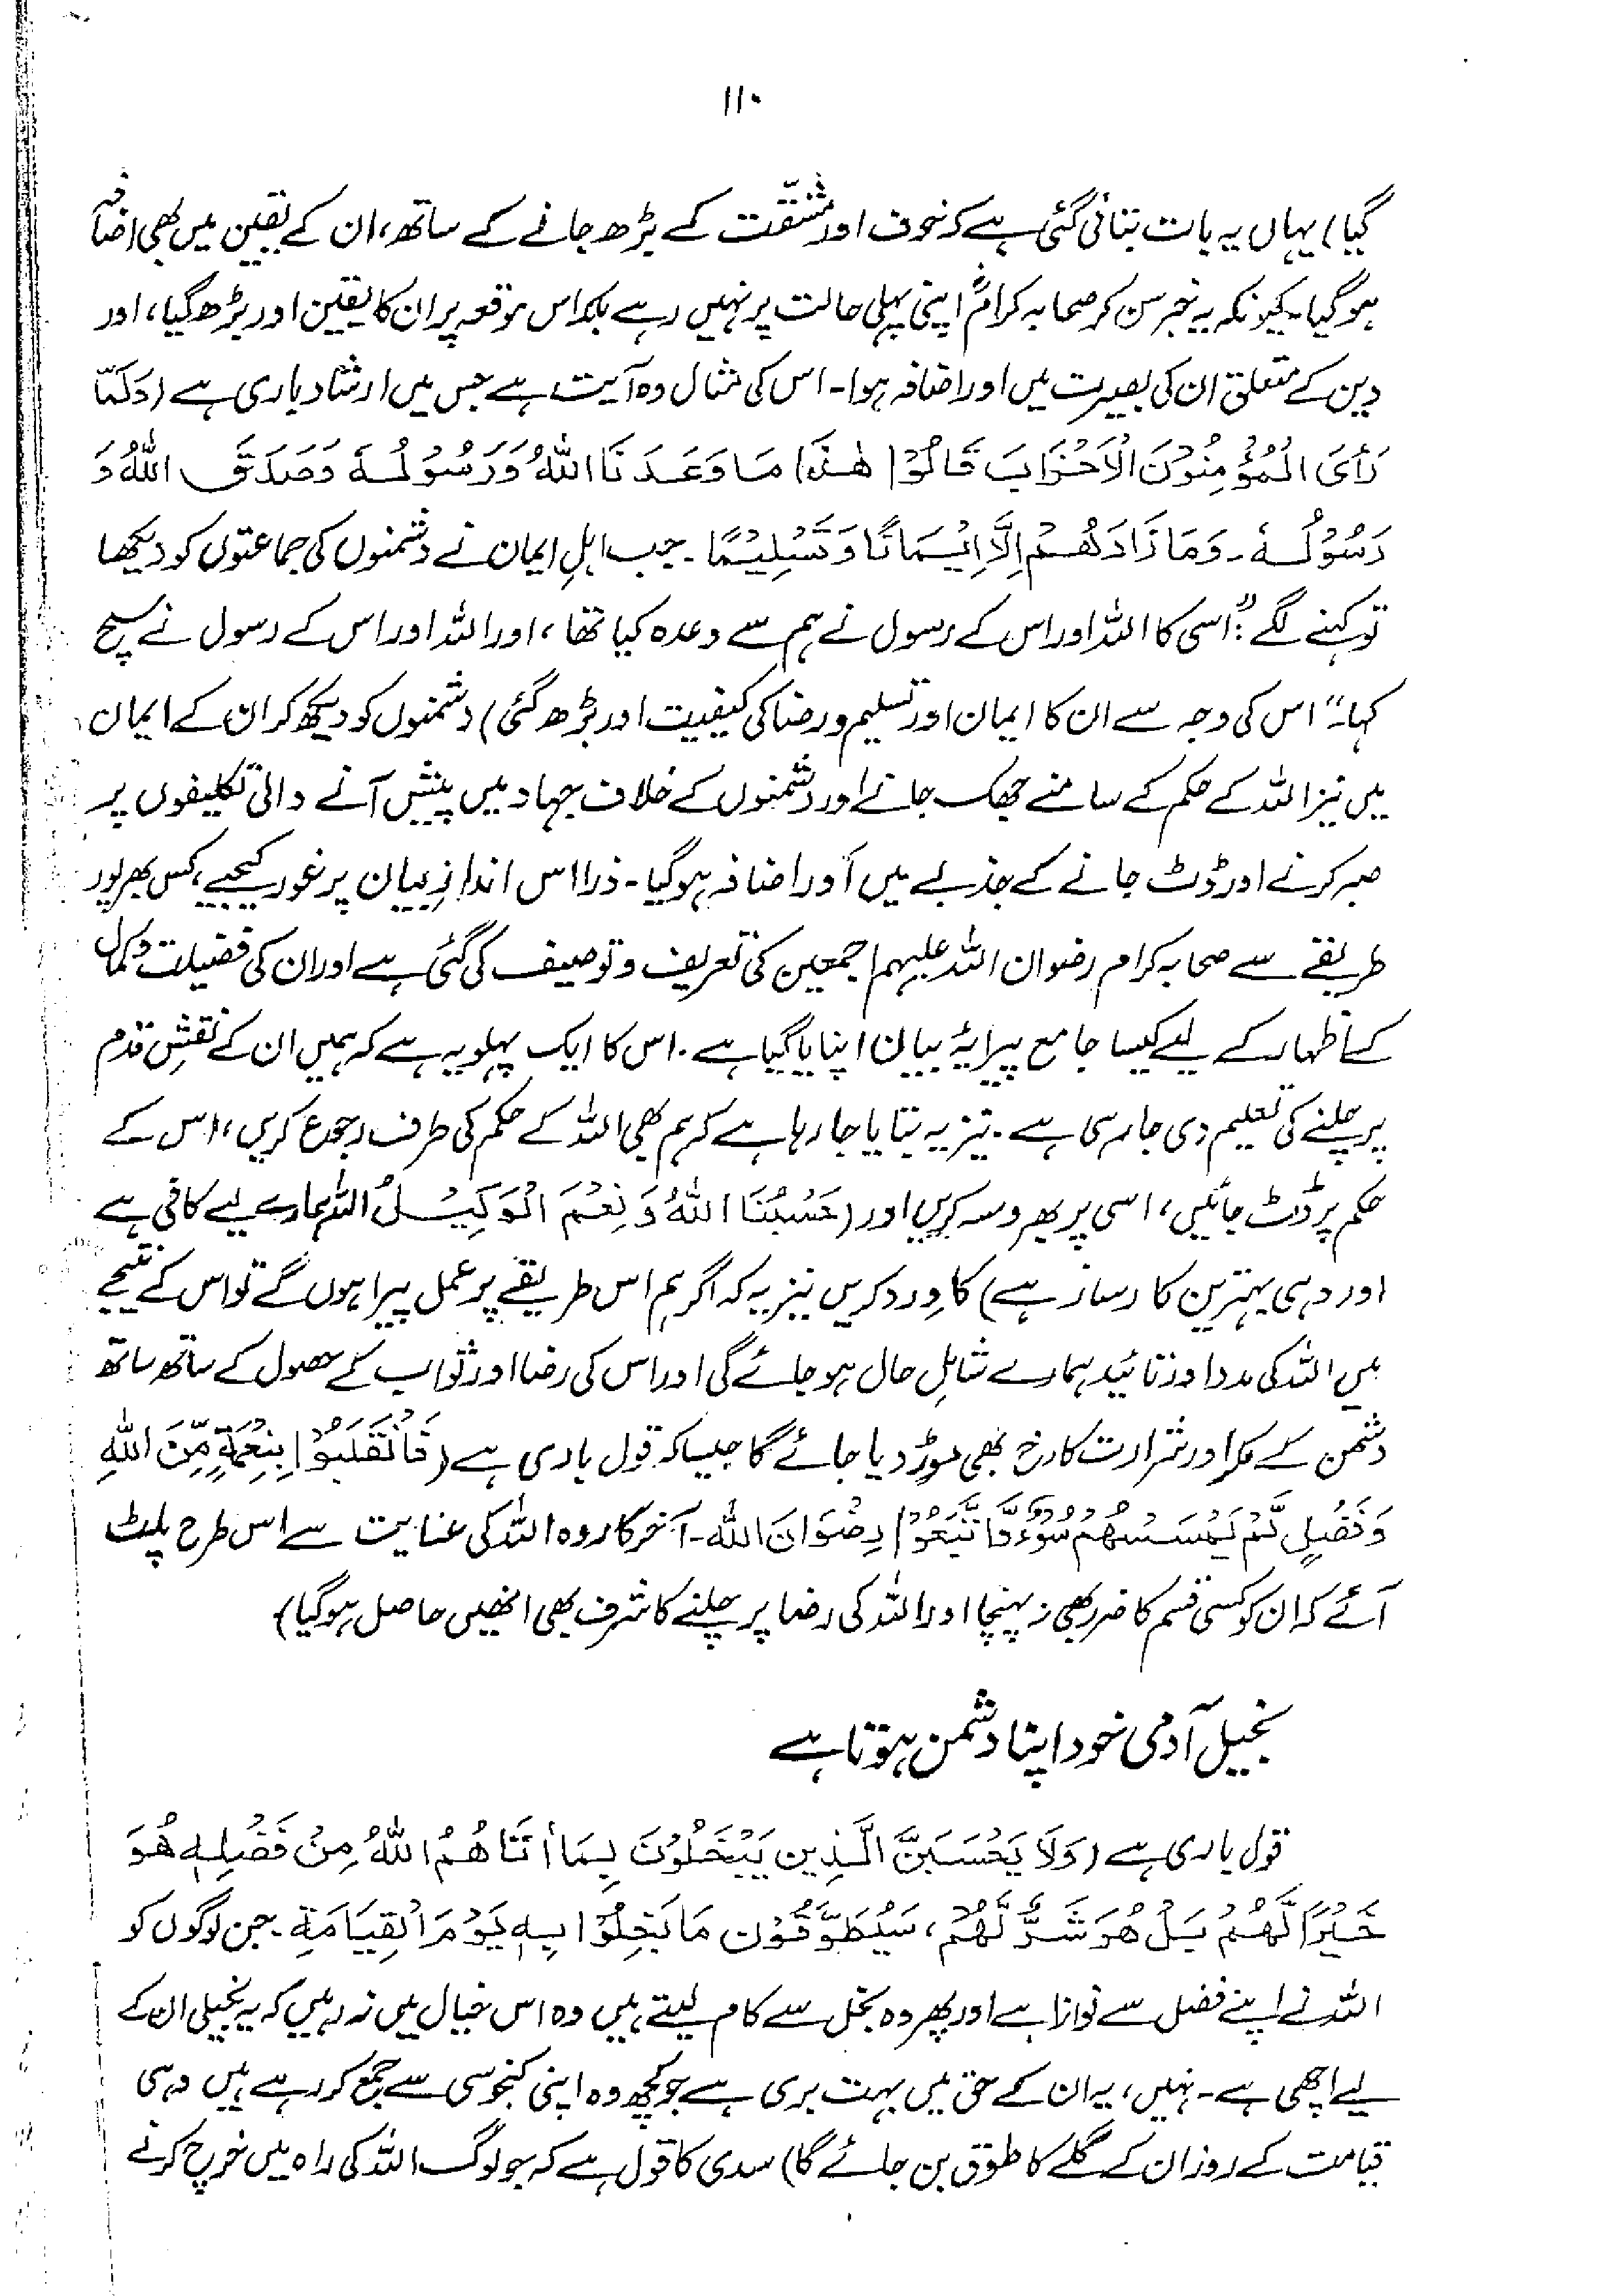 ۱۱۰
گیا) یہاں یہ بات بتائی گئی ہے کہ خوف اور مشقّت کے بڑھ جانے کے ساتھ، ان کے یقین میں بھی اضافہ
ہو گیا۔ کیونکہ یہ خبر سن کر صحابہ کرامؓ اپنی پہلی حالت پر نہیں رہے بلکہ اس موقعہ پر ان کا یقین اور بڑھ گیا، اور
دین کے متعلق ان کی بصیرت میں اور اضافہ ہوا۔ اس کی مثال وہ آیت ہے جس میں ارشاد باری ہے (وَلَمَّا
رَأَىَ الْمُؤْمِنُوْنَ الْاَحْزَابَ قَالُوْا هٰذَا مَا وَعَدَنَا اللّٰهُ وَرَسُوْلُهٗ وَصَدَقَ اللّٰهُ وَ
رَسُوْلُهٗ۔ وَمَا زَادَهُمْ اِلَّا اِيْمَانًا وَتَسْلِيْمًا۔ جب اہلِ ایمان نے دشمنوں کی جماعتوں کو دیکھا
تو کہنے لگے: "اسی کا اللہ اور اس کے رسول نے ہم سے وعدہ کیا تھا، اور اللہ اور اس کے رسول نے سچ
کہا۔" اس کی وجہ سے ان کا ایمان اور تسلیم و رضا کی کیفیت اور بڑھ گئی) دشمنوں کو دیکھ کر ان کے ایمان
میں نیز اللہ کے حکم کے سامنے جھک جانے اور دشمنوں کے خلاف جہاد میں پیش آنے والی تکلیفوں پر
صبر کرنے اور ڈٹ جانے کے جذبے میں اَور اضافہ ہو گیا۔ ذرا اس اندازِ بیان پر غور کیجیے، کس بھرپور
طریقے سے صحابہ کرام رضوان اللہ علیہم اجمعین کی تعریف و توصیف کی گئی ہے اور ان کی فضیلت و کمال
کے اظہار کے لیے کیسا جامع پیرایۂ بیان اپنایا گیا ہے۔ اس کا ایک پہلو یہ ہے کہ ہمیں ان کے نقشِ قدم
پر چلنے کی تعلیم دی جا رہی ہے۔ نیز یہ بتایا جا رہا ہے کہ ہم بھی اللہ کے حکم کی طرف رجوع کریں، اس کے
حکم پر ڈٹ جائیں، اسی پر بھروسہ کریں اور (حَسْبُنَا اللّٰهُ وَنِعْمَ الْوَكِيْلُ اللہ ہمارے لیے کافی ہے
اور وہی بہترین کارساز ہے) کا وِرد کریں نیز یہ کہ اگر ہم اس طریقے پر عمل پیرا ہوں گے تو اس کے نتیجے
میں اللہ کی مدد اور تائید ہمارے شاملِ حال ہو جائے گی اور اس کی رضا اور ثواب کے حصول کے ساتھ ساتھ
دشمن کے مکر اور شرارت کا رخ بھی موڑ دیا جائے گا جیسا کہ قول باری ہے (فَانْقَلَبُوْا بِنِعْمَةٍ مِّنَ اللّٰهِ
وَفَضْلٍ لَّمْ يَمْسَسْهُمْ سُوْءٌ وَّاتَّبَعُوْا رِضْوَانَ اللّٰه۔ آخر کار وہ اللہ کی عنایت سے اس طرح پلٹ
آئے کہ ان کو کسی قسم کا ضرر بھی نہ پہنچا اور اللہ کی رضا پر چلنے کا شرف بھی انھیں حاصل ہو گیا)
بخیل آدمی خود اپنا دشمن ہوتا ہے
قول باری ہے (وَلَا يَحْسَبَنَّ الَّذِين يَبْخَلُوْنَ بِمَا أٰتَاهُمُ اللّٰهُ مِنْ فَضْلِهٖ هُوَ
خَيْرًا لَّهُمْ بَلْ هُوَ شَرٌّ لَّهُمْ، سَيُطَوَّقُوْن مَا بَخِلُوْا بِهٖ يَوْمَ الْقِيَامَةِ۔ جن لوگوں کو
اللہ نے اپنے فضل سے نوازا ہے اور پھر وہ بخل سے کام لیتے ہیں وہ اس خیال میں نہ رہیں کہ یہ بخیلی ان کے
لیے اچھی ہے۔ نہیں، یہ ان کے حق میں بہت بری ہے جو کچھ وہ اپنی کنجوسی سے جمع کر رہے ہیں وہی
قیامت کے روز ان کے گلے کا طوق بن جائے گا) سدی کا قول ہے کہ جو لوگ اللہ کی راہ میں خرچ کرنے